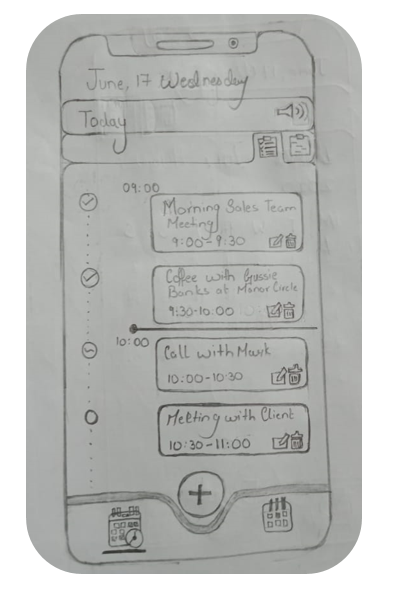 June, 17 Wednesday
Today
09:00
Morning Sales Team
Meeting
9:00-9:30
Coffee with Gussie
Banks at Manor Circle
9:30-10.00
10:00
Call with Mark
10:00-10:30
Meeting with Client
10:30-11:00